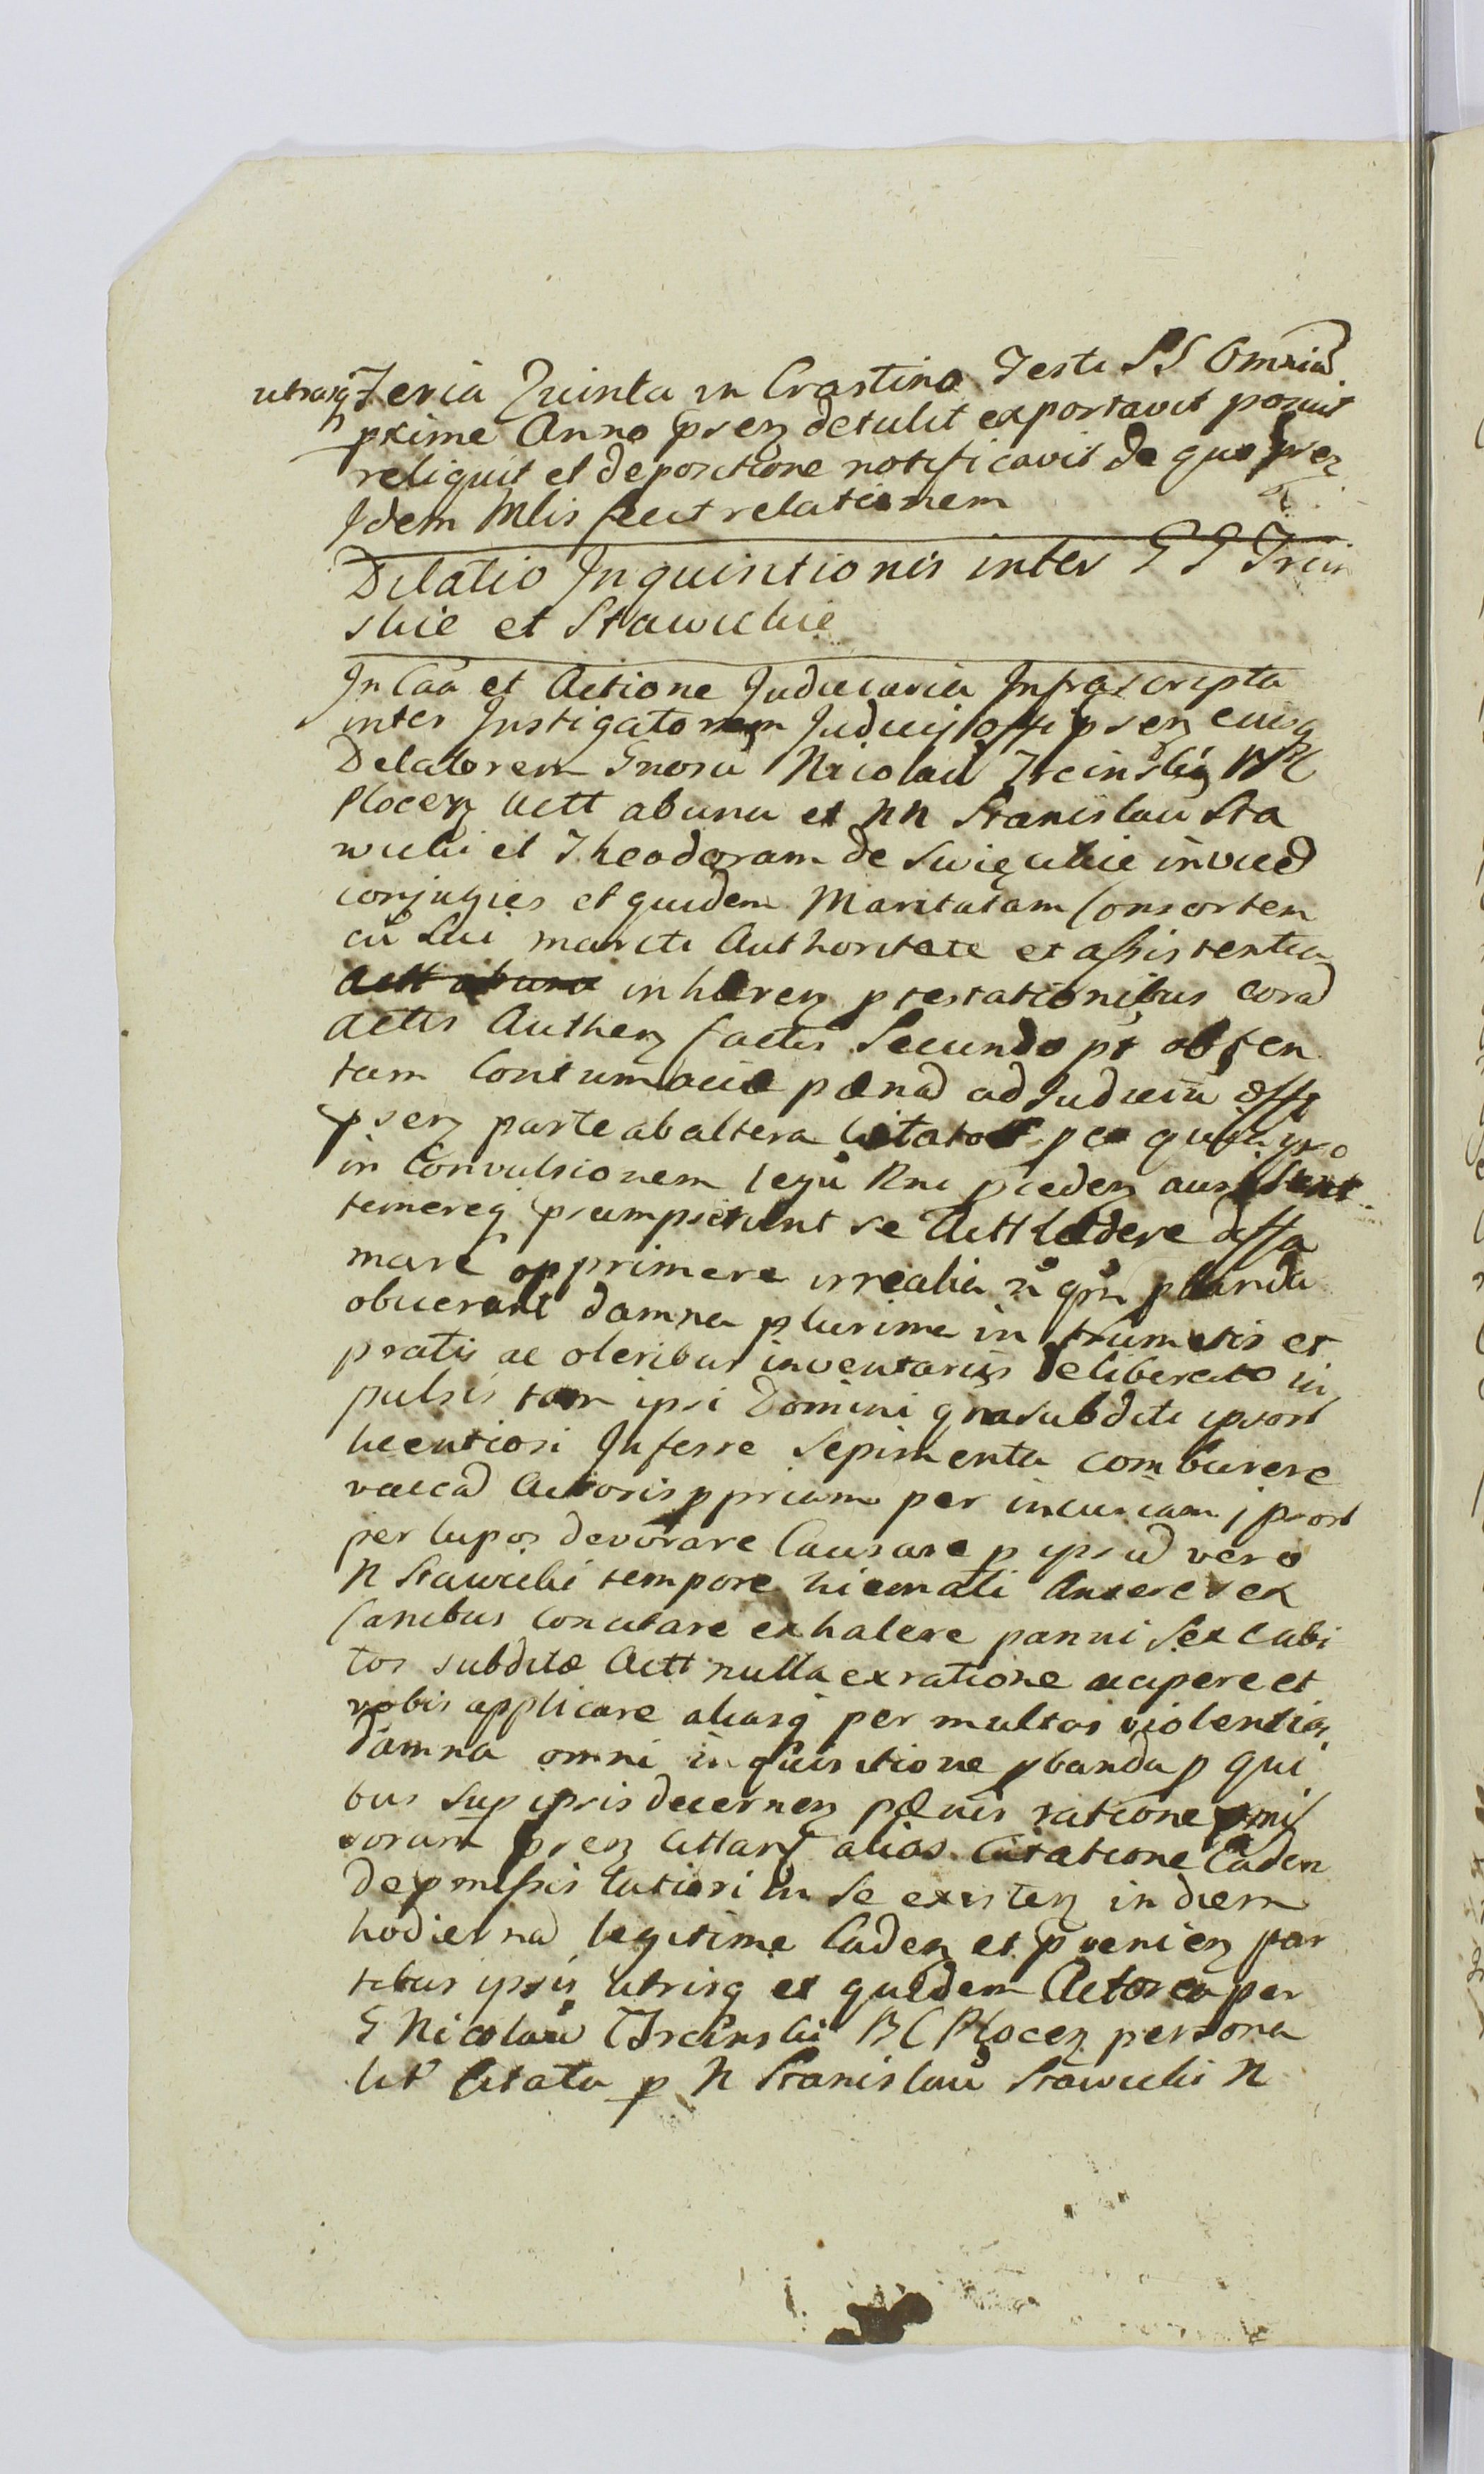 utrasq Feria Quinta in Crastino Festi SS Omniu
pxime Anno psen detulit exportavit posuit
reliquit et depositione notificavit de quo psen
Idem Mlis fecit relationem
Dilatio Inquisitionis inter G G Trcin
skie et Stawickie
In Caa et Actione Judiciaria Infrascripta
inter Instigatorem Judicij Offi psen eiusq
Delatorem Gnosu Nicolau Trcinski
Plocen Actt ab una et NN Stanislau Sta
wicki et Theodoram de Swięckie invic
conjuges et quidem Maritatam Consortem
cu Sui mariti Authoritate et assistentia
Actt ab una inhæren ptestationibus cora
Actis Authen factis Secundo pt obten
tam Contumaciæ pænam ad Judiciu Offi
psen parte ab altera Citatos per quia ipso
in Convulsionem legu Rni pceden ausi sunt
temereq psumpserunt se Actt lædere diffa
mare opprimere irrealia pbanda
obiicerunt damna plurima in frumetis et
pratis ac oleribus inventariis deliberato im
pulsis tam ipsi Domini qua subditi ipsor
licentiosi Inferre Sepimenta comburere
vacca Actoris ppriam per incuriam ipsor
per lupos devorare Causare p ipsu vero
N Stawicki tempore hiemali Anseres ex
Canibus Concitare exhalere panni Sex Cubi
tos subditæ Actt nulla ex ratione accipere et
vobis applicare aliasq per multas violentias
damna omni inquisitione pbanda p qui
bus Sup ipsis decernen pænis ratione pmis
sorum psen Cittant alias Citatione Caden
de pmissis latiori in Se existen in diem
hodierna legitime Caden et pvenien par
tibus ipsis utrisq et quidem Actorea per
G Nicolau Trcinski B C Plocen persona
lit Citata p N Stanislau Stawicki N